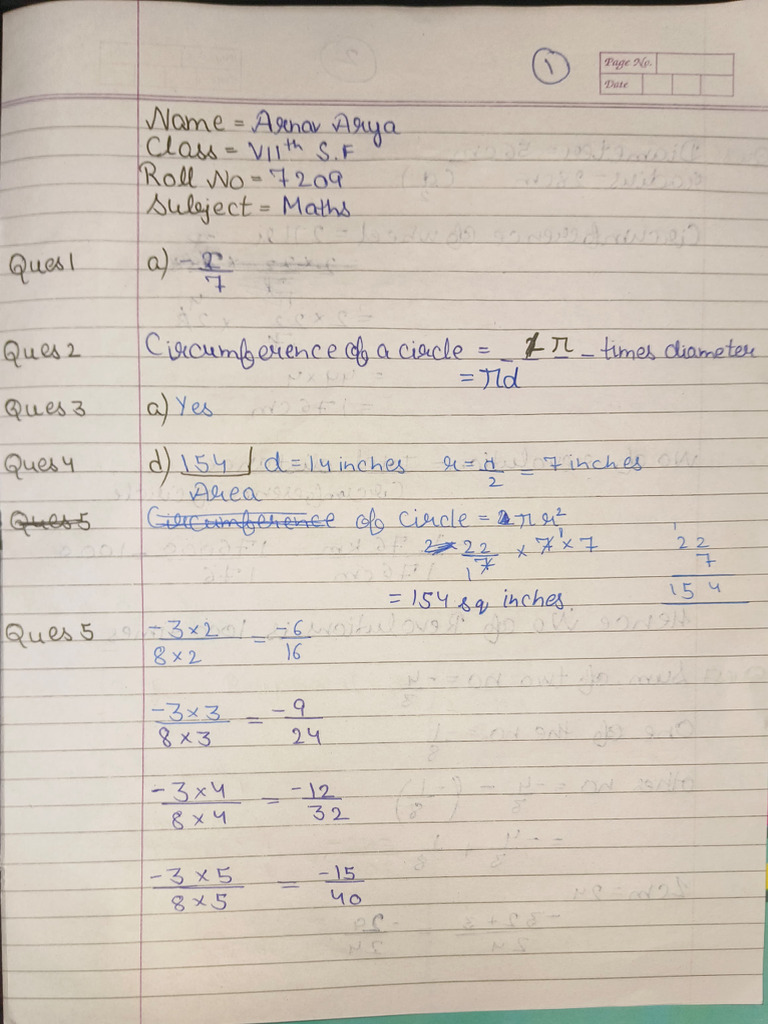 1
Page No.
Date
Name = Arnav Arya
Class = VIIth S.F
Roll No = 7209
Subject = Maths
Ques 1 a) - /7
Ques 2 Circumference of a circle = _ π _ times diameter
= πd
Ques 3 a) Yes
Ques 4 d) 154 d = 14 inches r = 14/2 = 7 inches
Area
Ques 5 Circumference of circle = πr²
22/7 × 7 × 7
= 154 sq inches.
1
22
7
154
Ques 5 -3×2/8×2 = -6/16
-3×3/8×3 = -9/24
-3×4/8×4 = -12/32
-3×5/8×5 = -15/40